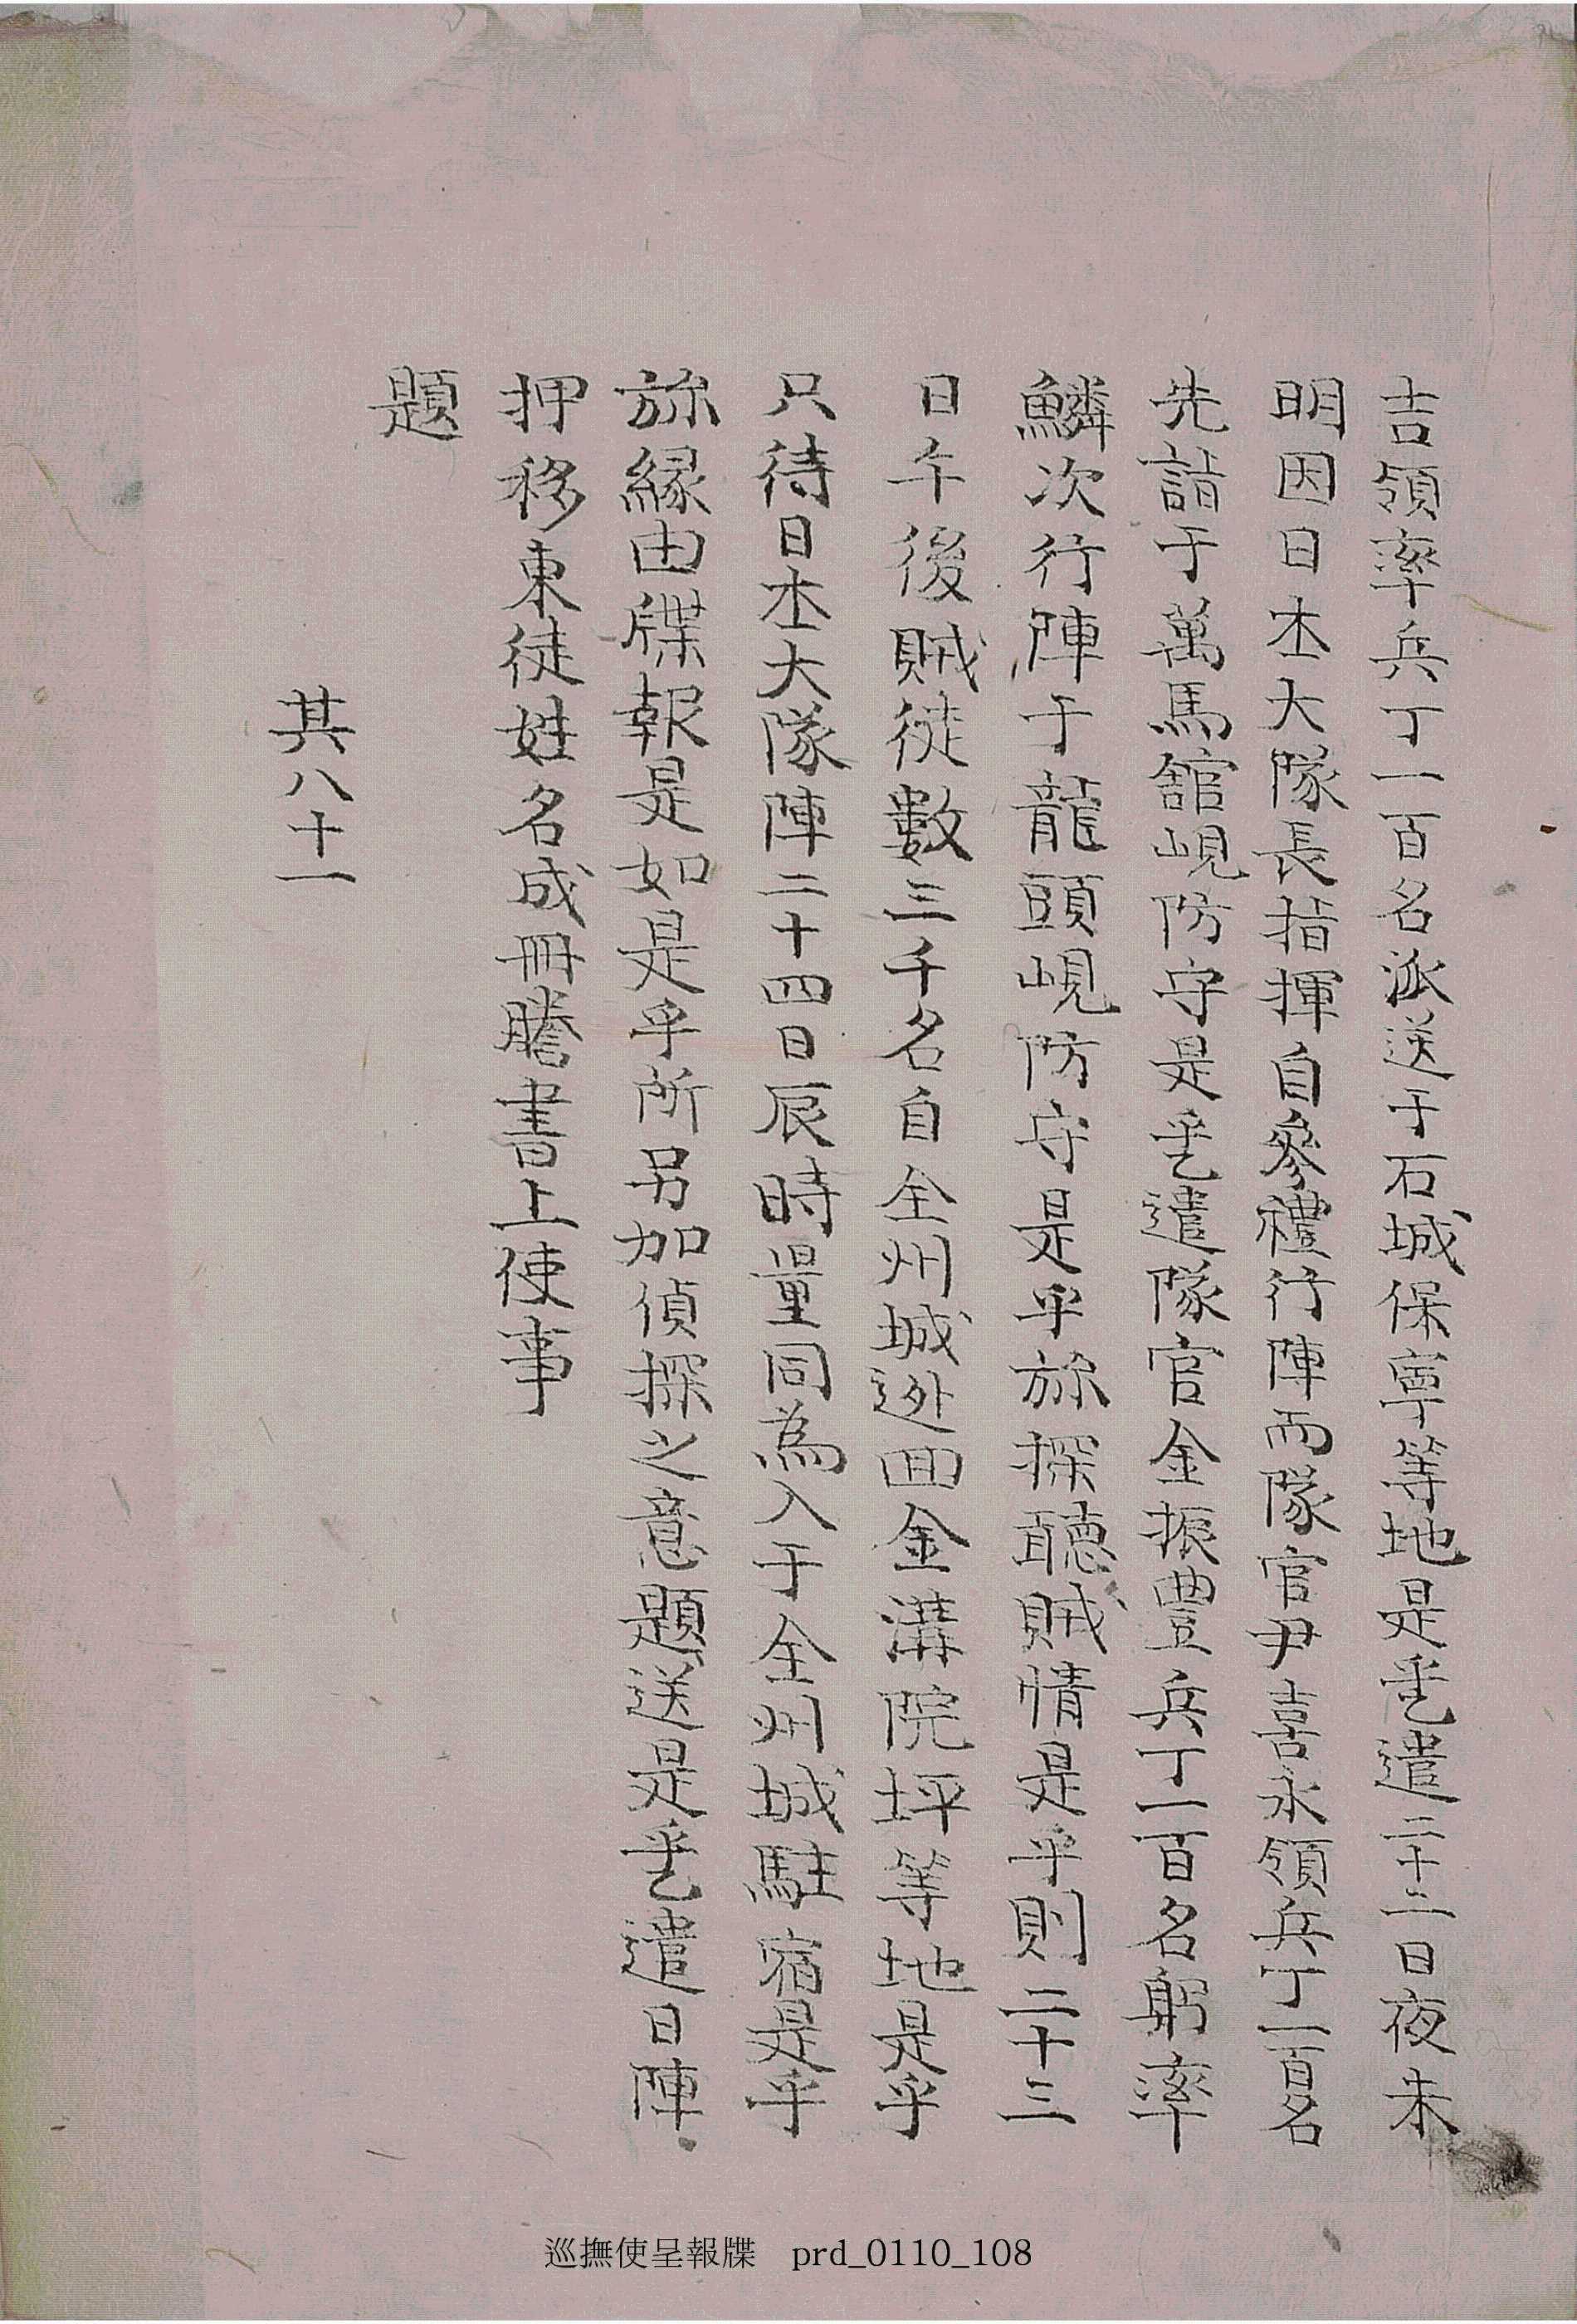 吉領率兵丁一百名派送于石城保寧等地是乎乙遣二十二日夜未
明因日本大隊長指揮自參禮行陣而隊官尹喜永領兵丁一百名
先詣于萬馬舘峴防守是乎乙遣隊官金振豊兵丁一百名躬率
鱗次行陣于龍頭峴防守是乎旀探聽賊情是乎則二十三
日午後賊徒數三千名自全州城迯回金溝院坪等地是乎
只待日本大隊陣二十四日辰時量同為入于全州城駐宿是乎
旀緣由牒報是如是乎所另加偵探之意題送是乎乙遣日陣
押移東徒姓名成冊謄書上使事
題
其八十一
巡撫使呈報牒 prd_0110_108